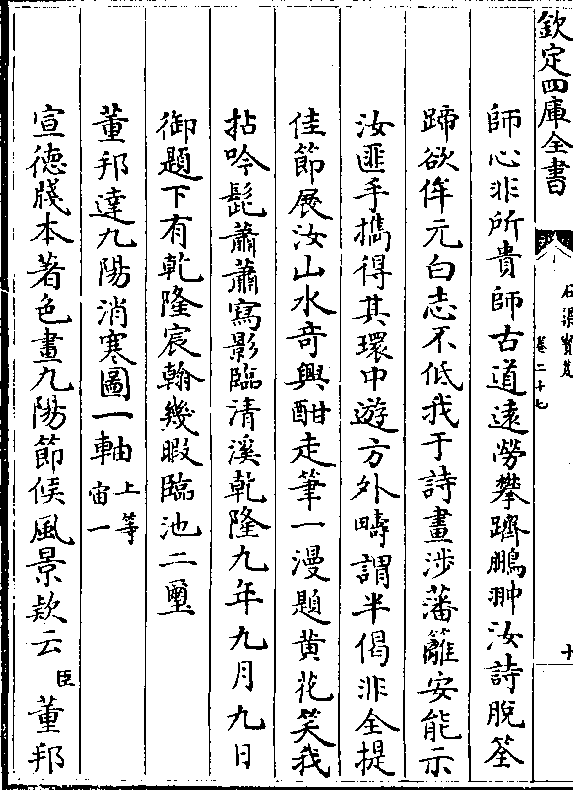 欽定四庫全書
石渠寶笈
卷二十七
十
師心非所貴師古道遠勞攀躋鵬翀汝詩脫筌
蹄欲侔元白志不低我于詩畫涉藩籬安能示
汝匪手攜得其環中遊方外疇謂半偈非全提
佳節展汝山水奇興酣走筆一漫題黄花笑我
拈吟髭蕭蕭寫影臨清溪乾隆九年九月九日
御題下有乾隆宸翰幾暇臨池二璽
董邦達九陽消寒圖一軸上等宙一
宣德牋本著色畫九陽節候風景欵云臣董邦